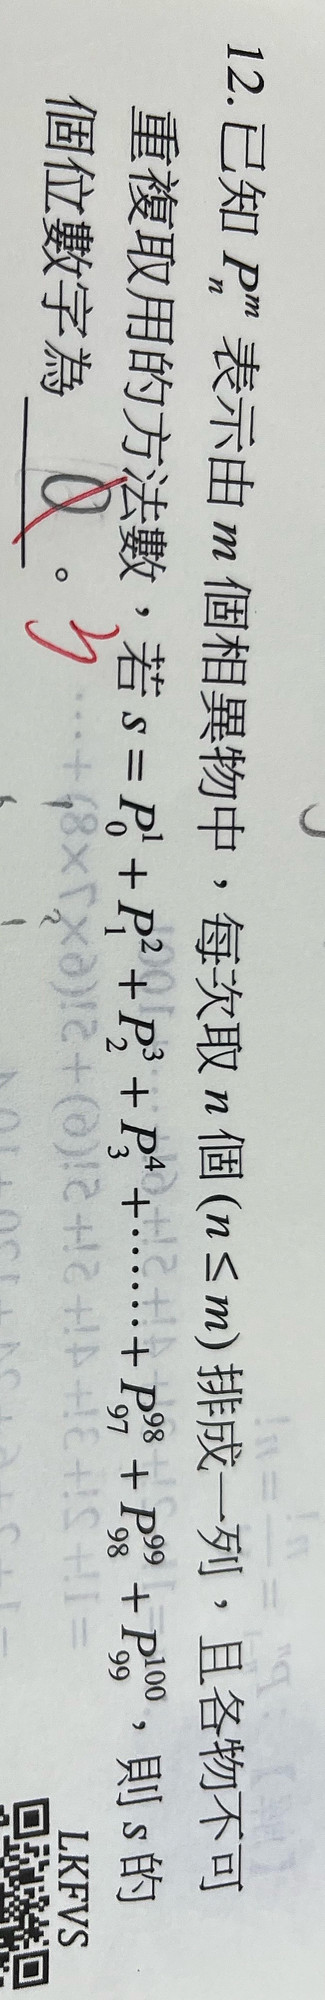 12.已知 $P_n^m$ 表示由 m 個相異物中，每次取 n 個 (n ≤ m) 排成一列，且各物不可
重複取用的方法數，若 $s = P_0^1 + P_1^2 + P_2^3 + P_3^4 + …… + P_{97}^{98} + P_{98}^{99} + P_{99}^{100}$，則 s 的
個位數字為 0 。 3
LKFVS